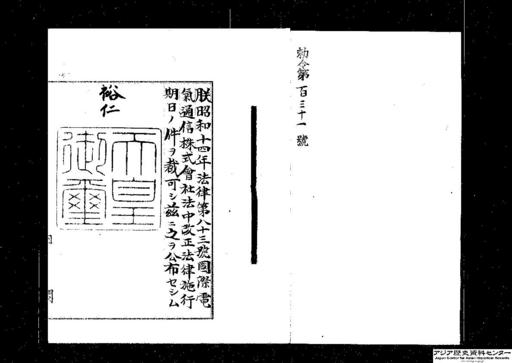 勅令第百三十一號
朕昭和十四年法律第八十三號國際電
氣通信株式會社法中改正法律施行
期日ノ件ヲ裁可シ茲ニ之ヲ公布セシム
裕仁
天皇
御璽
アジア歴史資料センター
Japan Center for Asian Historical Records